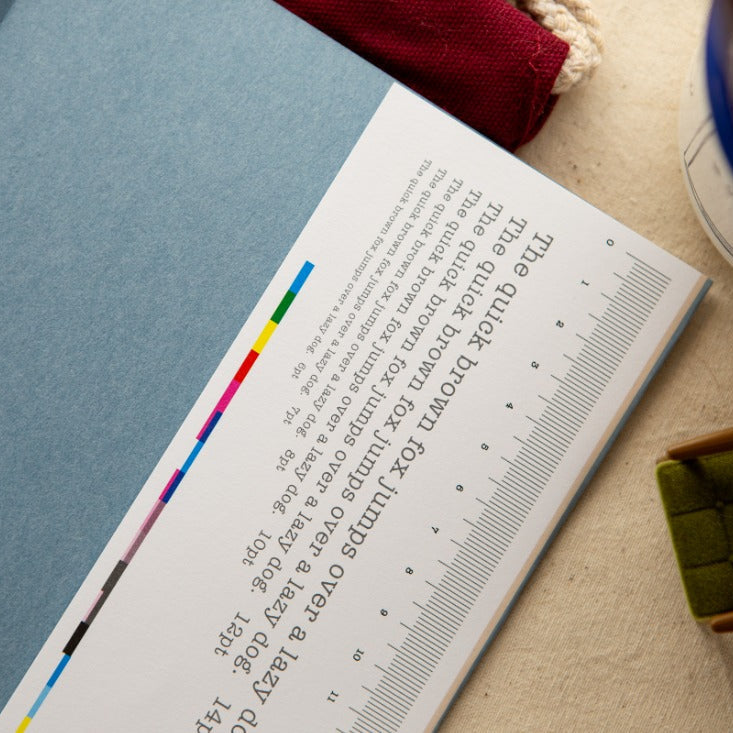 The quick brown fox jumps over a lazy dog. 6pt
The quick brown fox jumps over a lazy dog. 7pt
The quick brown fox jumps over a lazy dog. 8pt
The quick brown fox jumps over a lazy dog. 10pt
The quick brown fox jumps over a lazy dog. 12pt
The quick brown fox jumps over a lazy do 14p
0 1 2 3 4 5 6 7 8 9 10 11